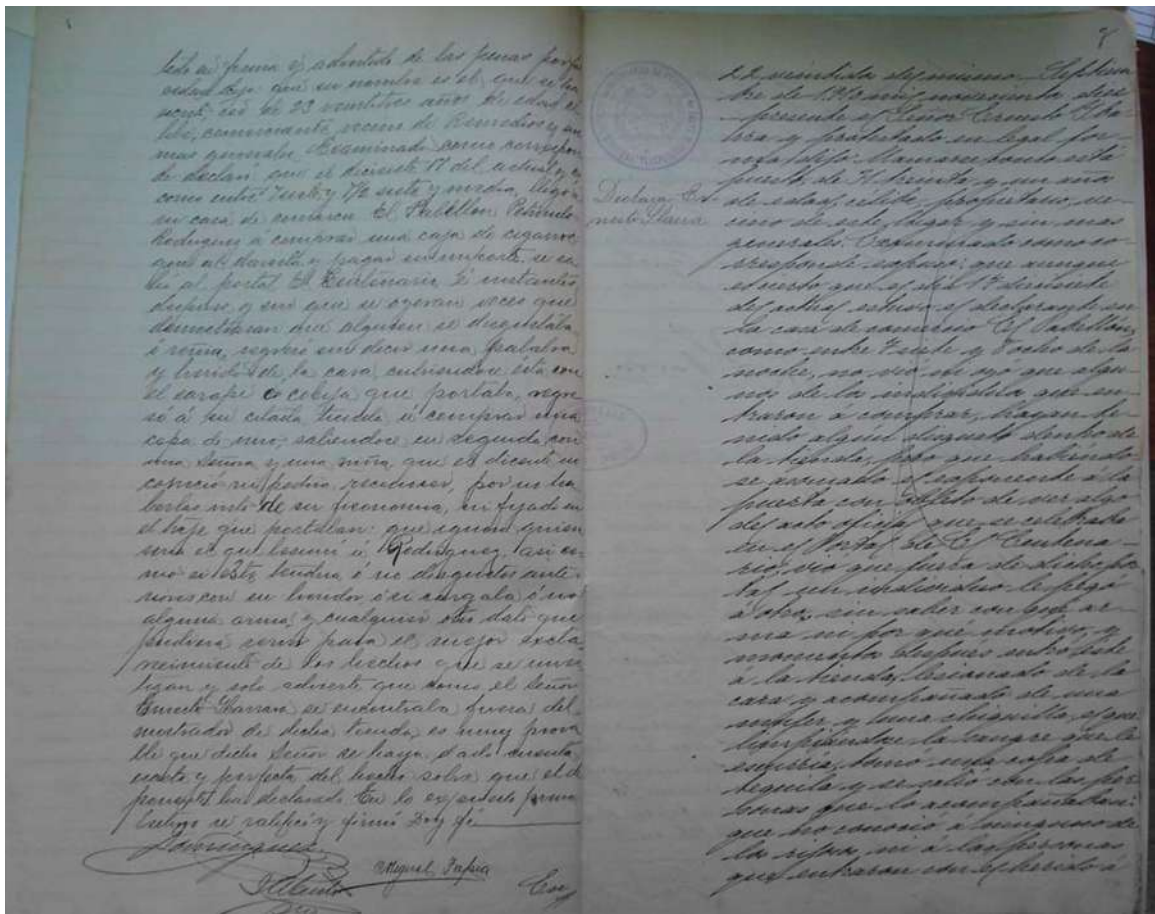 testó en forma y advertido de las penas por fal
sedad dijo: que su nombre es el que se ha
escrito, ser de 23 veintitres años de edad, cé
libe, comerciante, vecino de Remedios y sin
mas generales. Examinado como correspon
de declaró: que el diecisiete 17 del actual, y
como entre 7 siete y 7½ siete y media, llegó á
su casa de comercio El Pabellon
Rodriguez á comprar una caja de cigarros
que al darsela y pagar su importe, se sa
lió al portal El Centenario, é instantes
despues, y sin que se oyeran voces que
demostraran que alguien se disgustaba
ó reñia, regresó sin decir una palabra
y herido de la cara, cubriendose ésta con
el sarape ó cobija que portaba, regre
só á su citada tienda á comprar una
copa de vino, saliendose en seguida con
una Señora y una niña, que el dicente no
conoció ni podría reconocer, por no ha
berlas visto de su fisonomia, ni fijado en
el traje que portaban: que ignora quien
seria el que lesionó á Rodriguez, asi co
mo si éste tendria ó no disgustos ante
riores con su heridor, ó si cargaba ó no
alguna arma, y cualquier otro dato que
pudiera servir para el mejor escla
recimiento de los hechos que se inves
tigan y solo advierte que como el Señor
Ernesto se encontraba fuera del
mostrador de dicha tienda, es muy proba
ble que dicho Señor se haya dado cuenta
exacta y perfecta del hecho sobre que el de
ponente ha declarado. En lo expuesto previa
lectura se ratificó y firmó. Doy fé.
Dominguez
Miguel Tapia
8
Declara Er-
nesto
22 veintidos del mismo Septiem-
bre de 1910 mil novecientos diez
presente el Señor Ernesto
y protestado en legal for-
ma dijo: llamarse como está
puesto, de 31 treinta y un años
de edad, célibe, propietario, ve-
cino de este lugar y sin mas
generales. Examinado como co-
rresponde expuso: que aunque
es cierto que el dia 17 diecisiete
del actual estuvo el declarante en
la casa de comercio El Pabellon,
como entre 7 siete y 8 ocho de la
noche, no vió ni oyó que algu-
nos de los individuos que en-
traron á comprar, hayan te-
nido algún disgusto dentro de
la tienda, pero que habiendo
se asomado el exponente á la
puerta con objeto de ver algo
del acto oficial que se celebraba
en el Portal de El Centena-
rio, vió que fuera de dicho por-
tal un individuo le pegó
á otro, sin saber con que ar-
ma ni por que motivo, y
momentos despues entró éste
á la tienda, lesionado de la
cara y acompañado de una
mujer y una chiquilla, y que
limpiandose la sangre que le
escurria, tomó una copa de
tequila y se salió con las per
sonas que lo acompañaban:
que no conoció á ninguno de
los ni á las personas
que entraron con el herido á